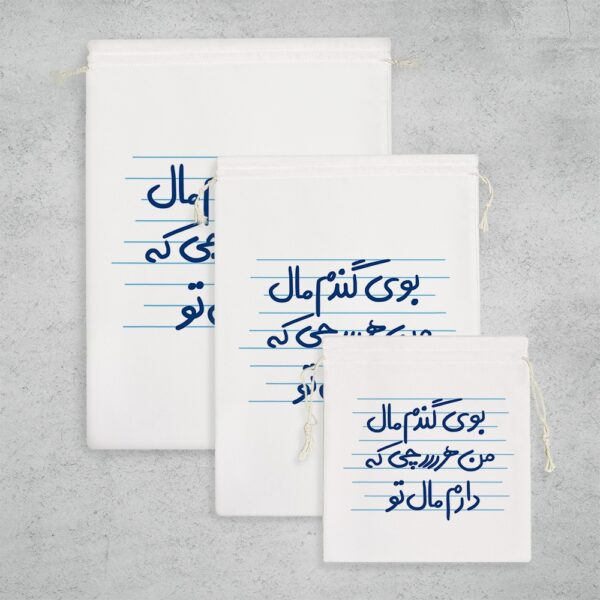 مال
چی که
تو
بوی گندم مال
من هررررچی که
بوی گندم مال
من هررررچی که
دارم مال تو